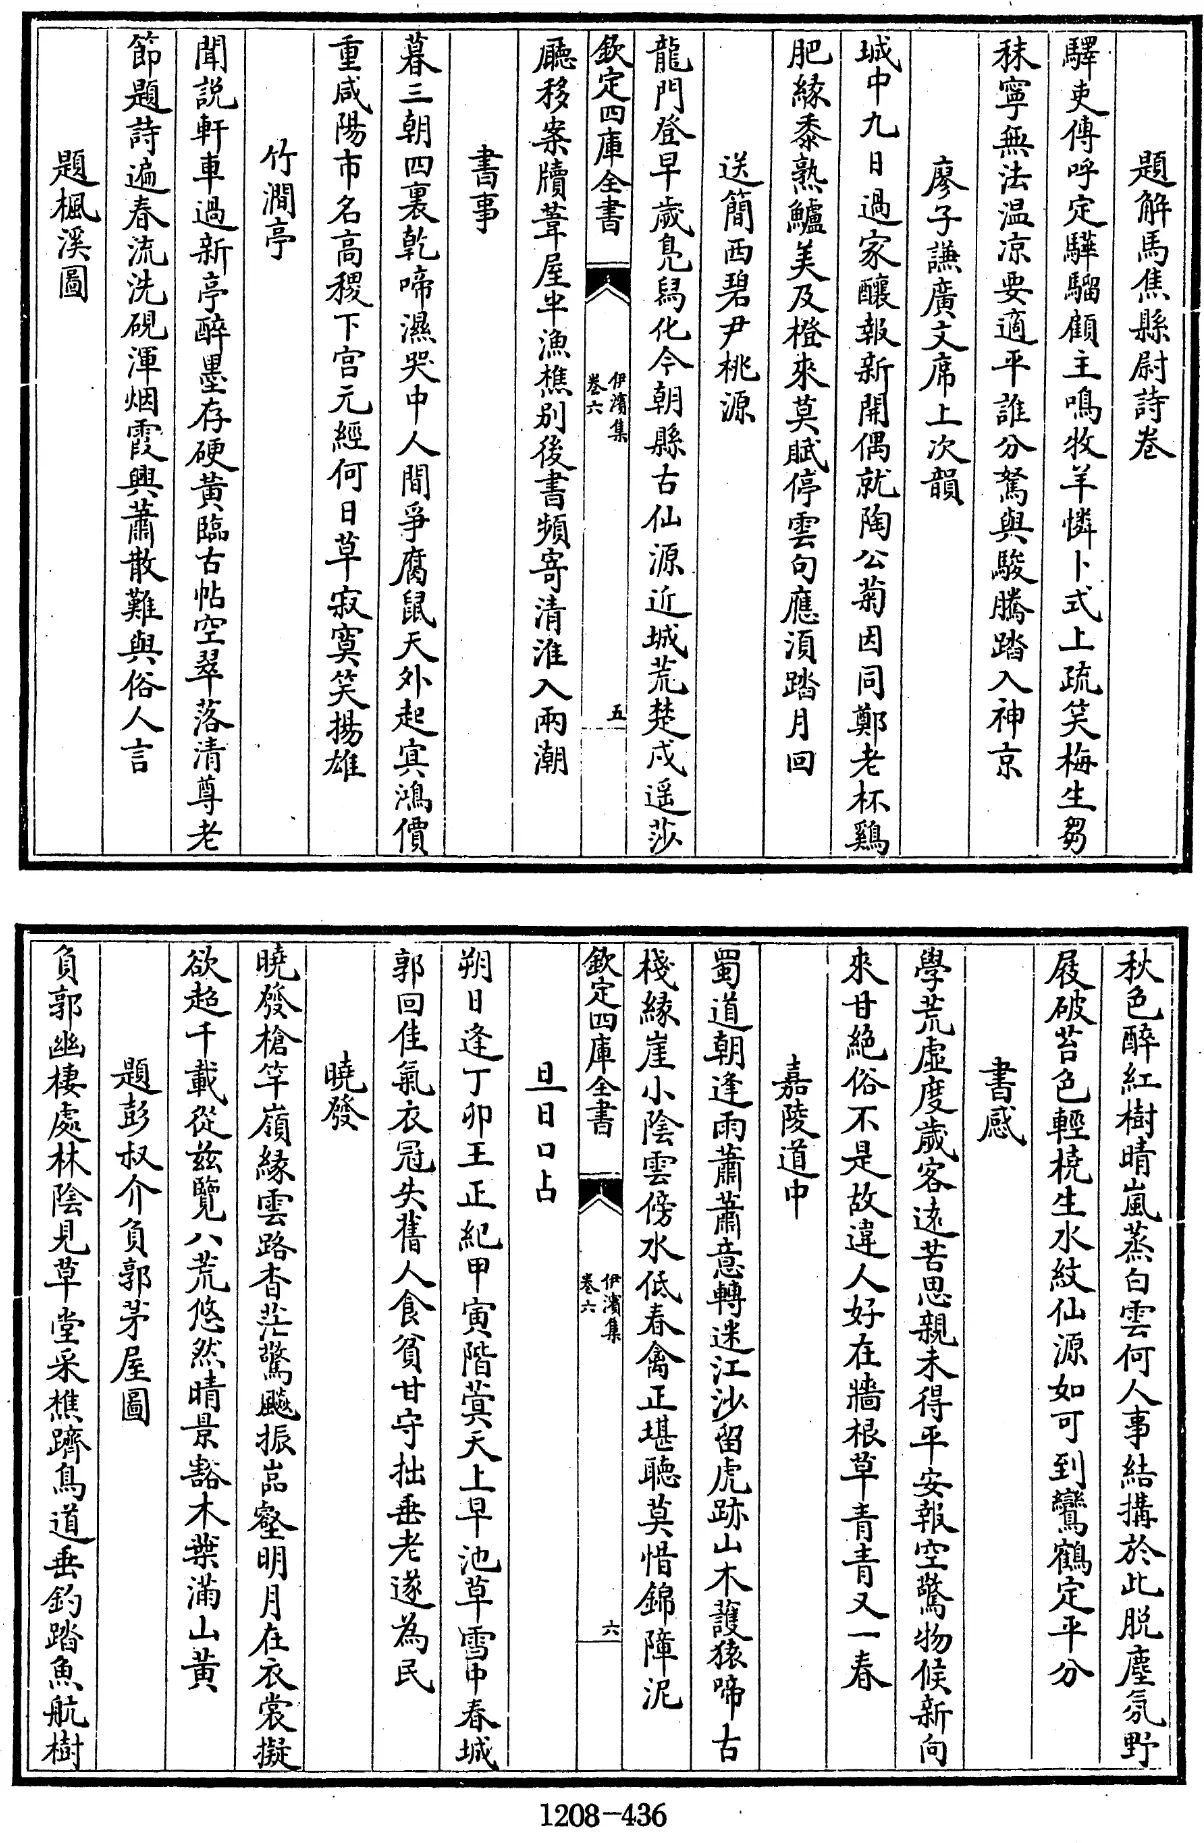 題解馬焦縣尉詩卷
驛吏傳呼定驊騮顧主鳴牧羊憐卜式上疏笑梅生芻
秣寧無法温凉要適平誰分駑與駿騰踏入神京
廖子謙廣文席上次韻
城中九日過家釀報新開偶就陶公菊因同鄭老杯鷄
肥緣黍熟鱸美及橙來莫賦停雲句應須踏月回
送簡西碧尹桃源
龍門登早歲鳧舄化今朝縣古仙源近城荒楚戍遥莎
欽定四庫全書
伊濱集
卷六
五
廳移案牘葦屋半漁樵别後書頻寄清淮入兩潮
書事
暮三朝四裏乾啼濕哭中人間爭腐鼠天外起㝠鴻價
重咸陽市名高稷下宫元經何日草寂寞笑揚雄
竹澗亭
聞說軒車過新亭醉墨存硬黄臨古帖空翠落清尊老
節題詩遍春流洗硯渾烟霞興蕭散難與俗人言
題楓溪圖
秋色醉紅樹晴嵐蒸白雲何人事結搆於此脱塵氛野
屐破苔色輕橈生水紋仙源如可到鸞鶴定平分
書感
學荒虛度歲客遠苦思親未得平安報空驚物候新向
來甘絶俗不是故違人好在牆根草青青又一春
嘉陵道中
蜀道朝逢雨蕭蕭意轉迷江沙留虎跡山木護猿啼古
棧緣崖小陰雲傍水低春禽正堪聽莫惜錦障泥
欽定四庫全書
伊濱集
卷六
六
旦日口占
朔日逢丁卯王正紀甲寅階蓂天上早池草雪中春城
郭回佳氣衣冠失舊人食貧甘守拙垂老遂為民
曉發
曉發槍竿嶺緣雲路杳茫驚飈振嵓壑明月在衣裳擬
欲超千載從兹覽八荒悠然晴景豁木葉滿山黄
題彭叔介負郭茅屋圖
負郭幽棲處林陰見草堂采樵躋鳥道垂釣踏魚航樹
1208-436